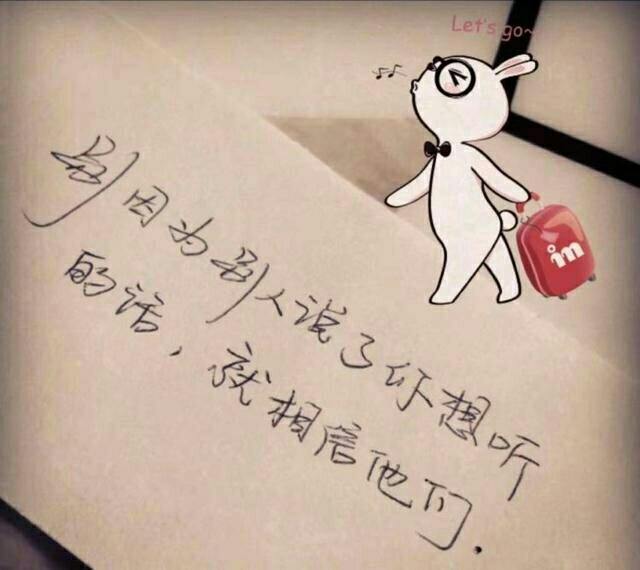 Let's go~
别因为别人说了你想听
的话，就相信他们.
im